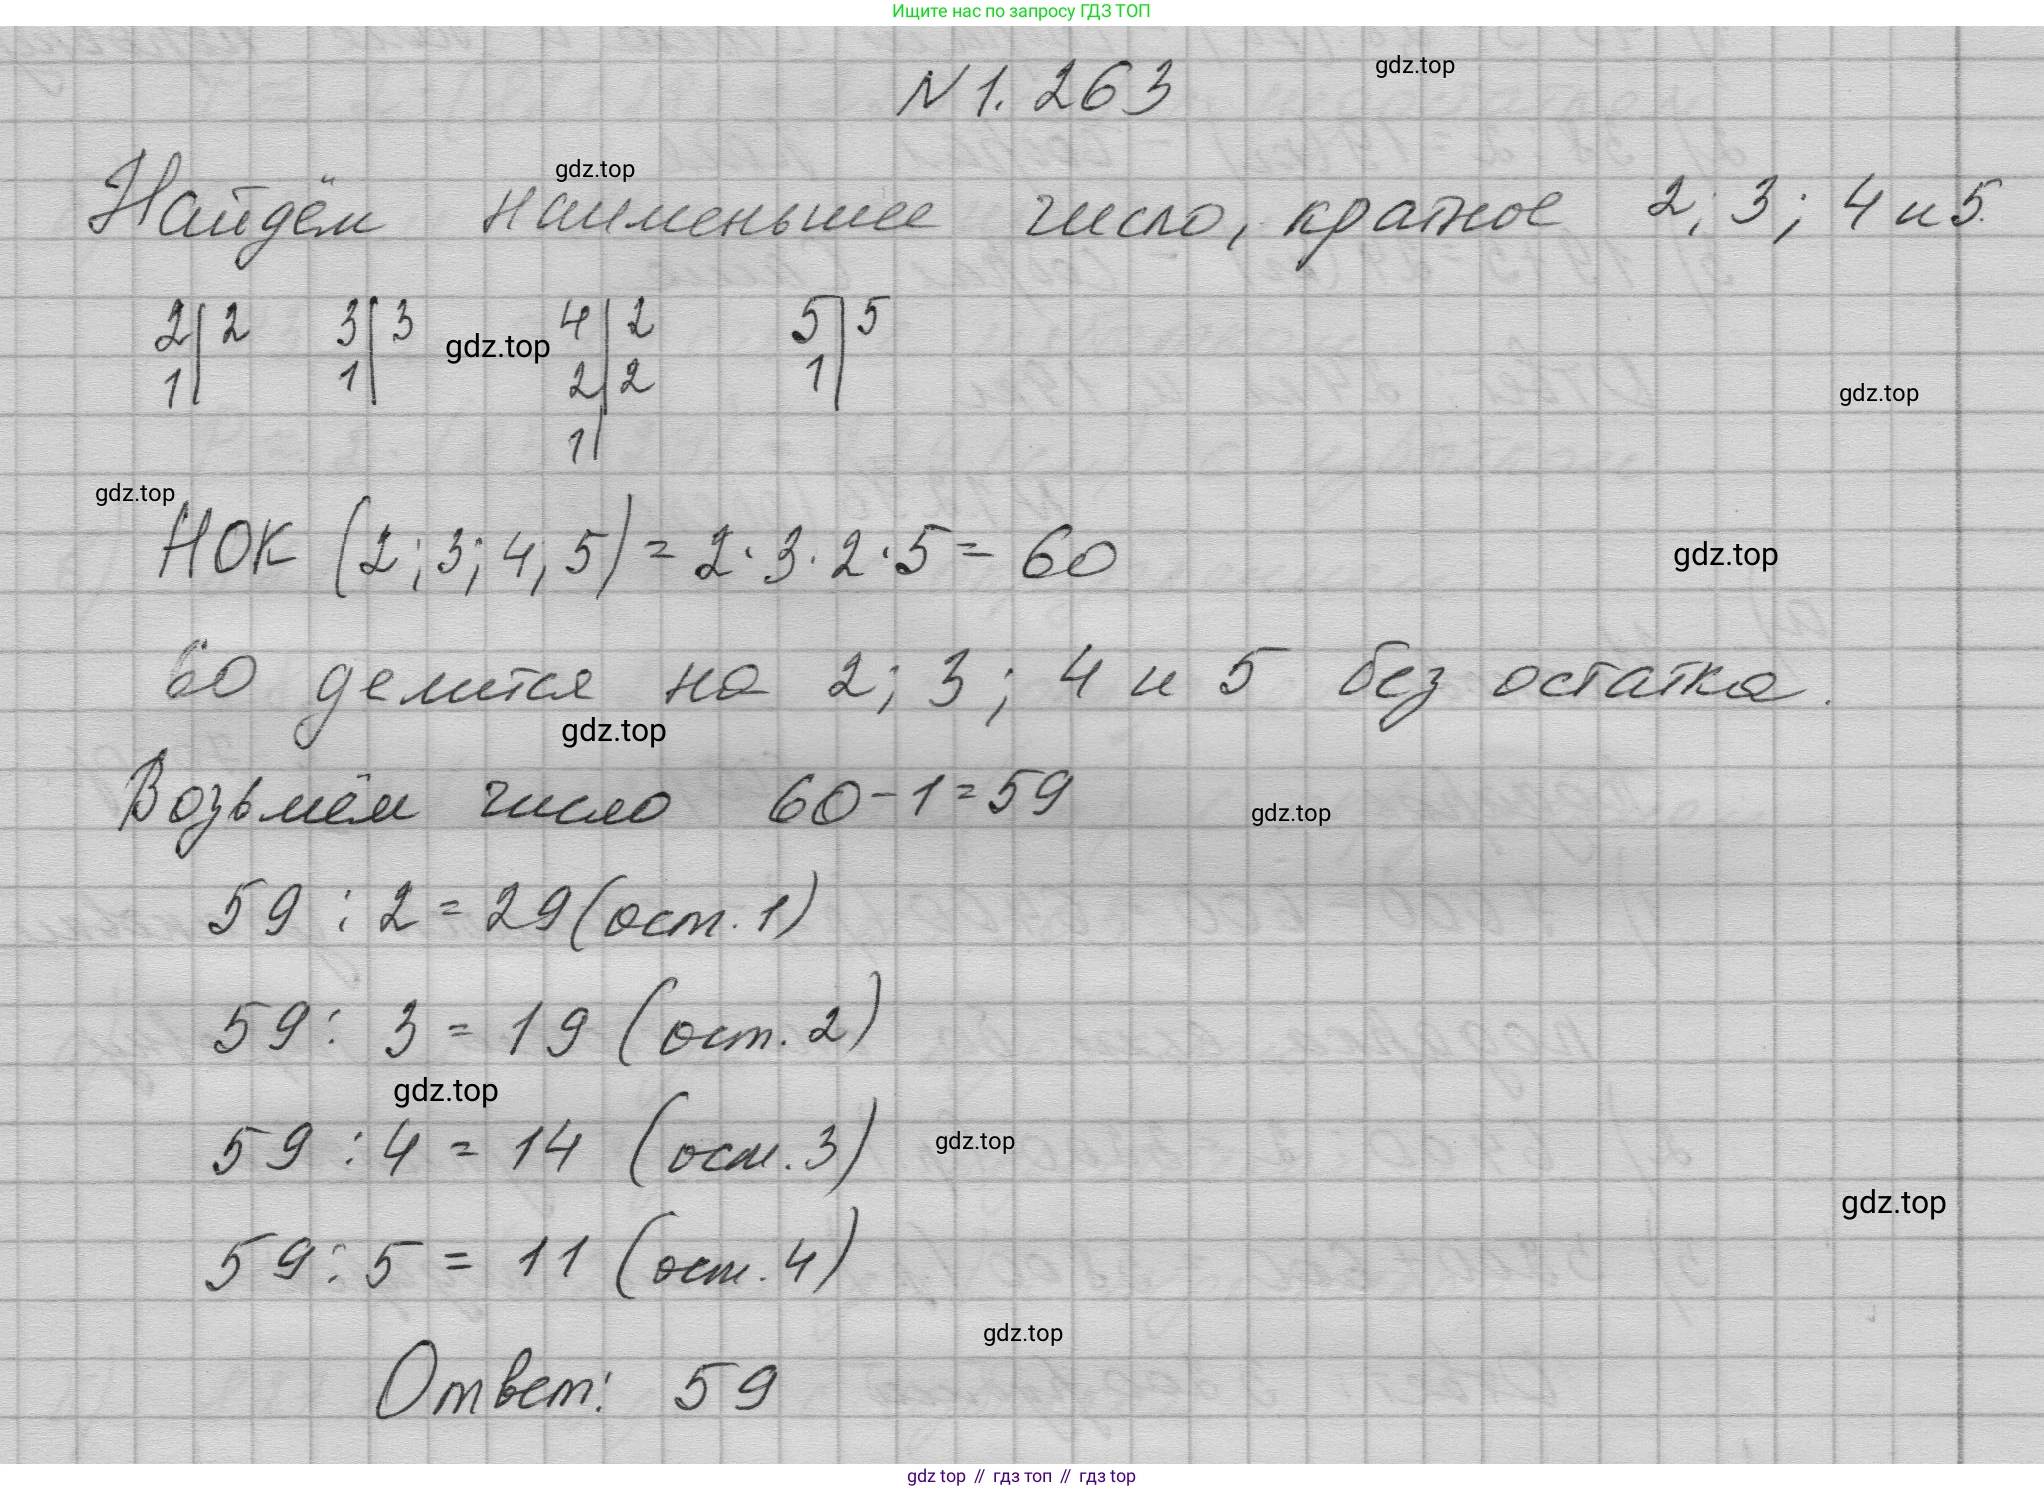 Ищите нас по запросу ГДЗ ТОП
N 1. 263
gdz.top
gdz.top
Найдём наименьшее число, кратное 2; 3; 4 и 5.
2|2 3|3 4|2 5|5
1| 1| 2|2 1|
1|
gdz.top
gdz.top
gdz.top
НОК (2; 3; 4; 5) = 2 · 3 · 2 · 5 = 60
gdz.top
60 делится на 2; 3; 4 и 5 без остатка.
gdz.top
Возьмём число 60 - 1 = 59
gdz.top
59 : 2 = 29 (ост. 1)
59 : 3 = 19 (ост. 2)
gdz.top
59 : 4 = 14 (ост. 3)
gdz.top
gdz.top
59 : 5 = 11 (ост. 4)
gdz.top
Ответ: 59
gdz top // гдз топ // gdz top